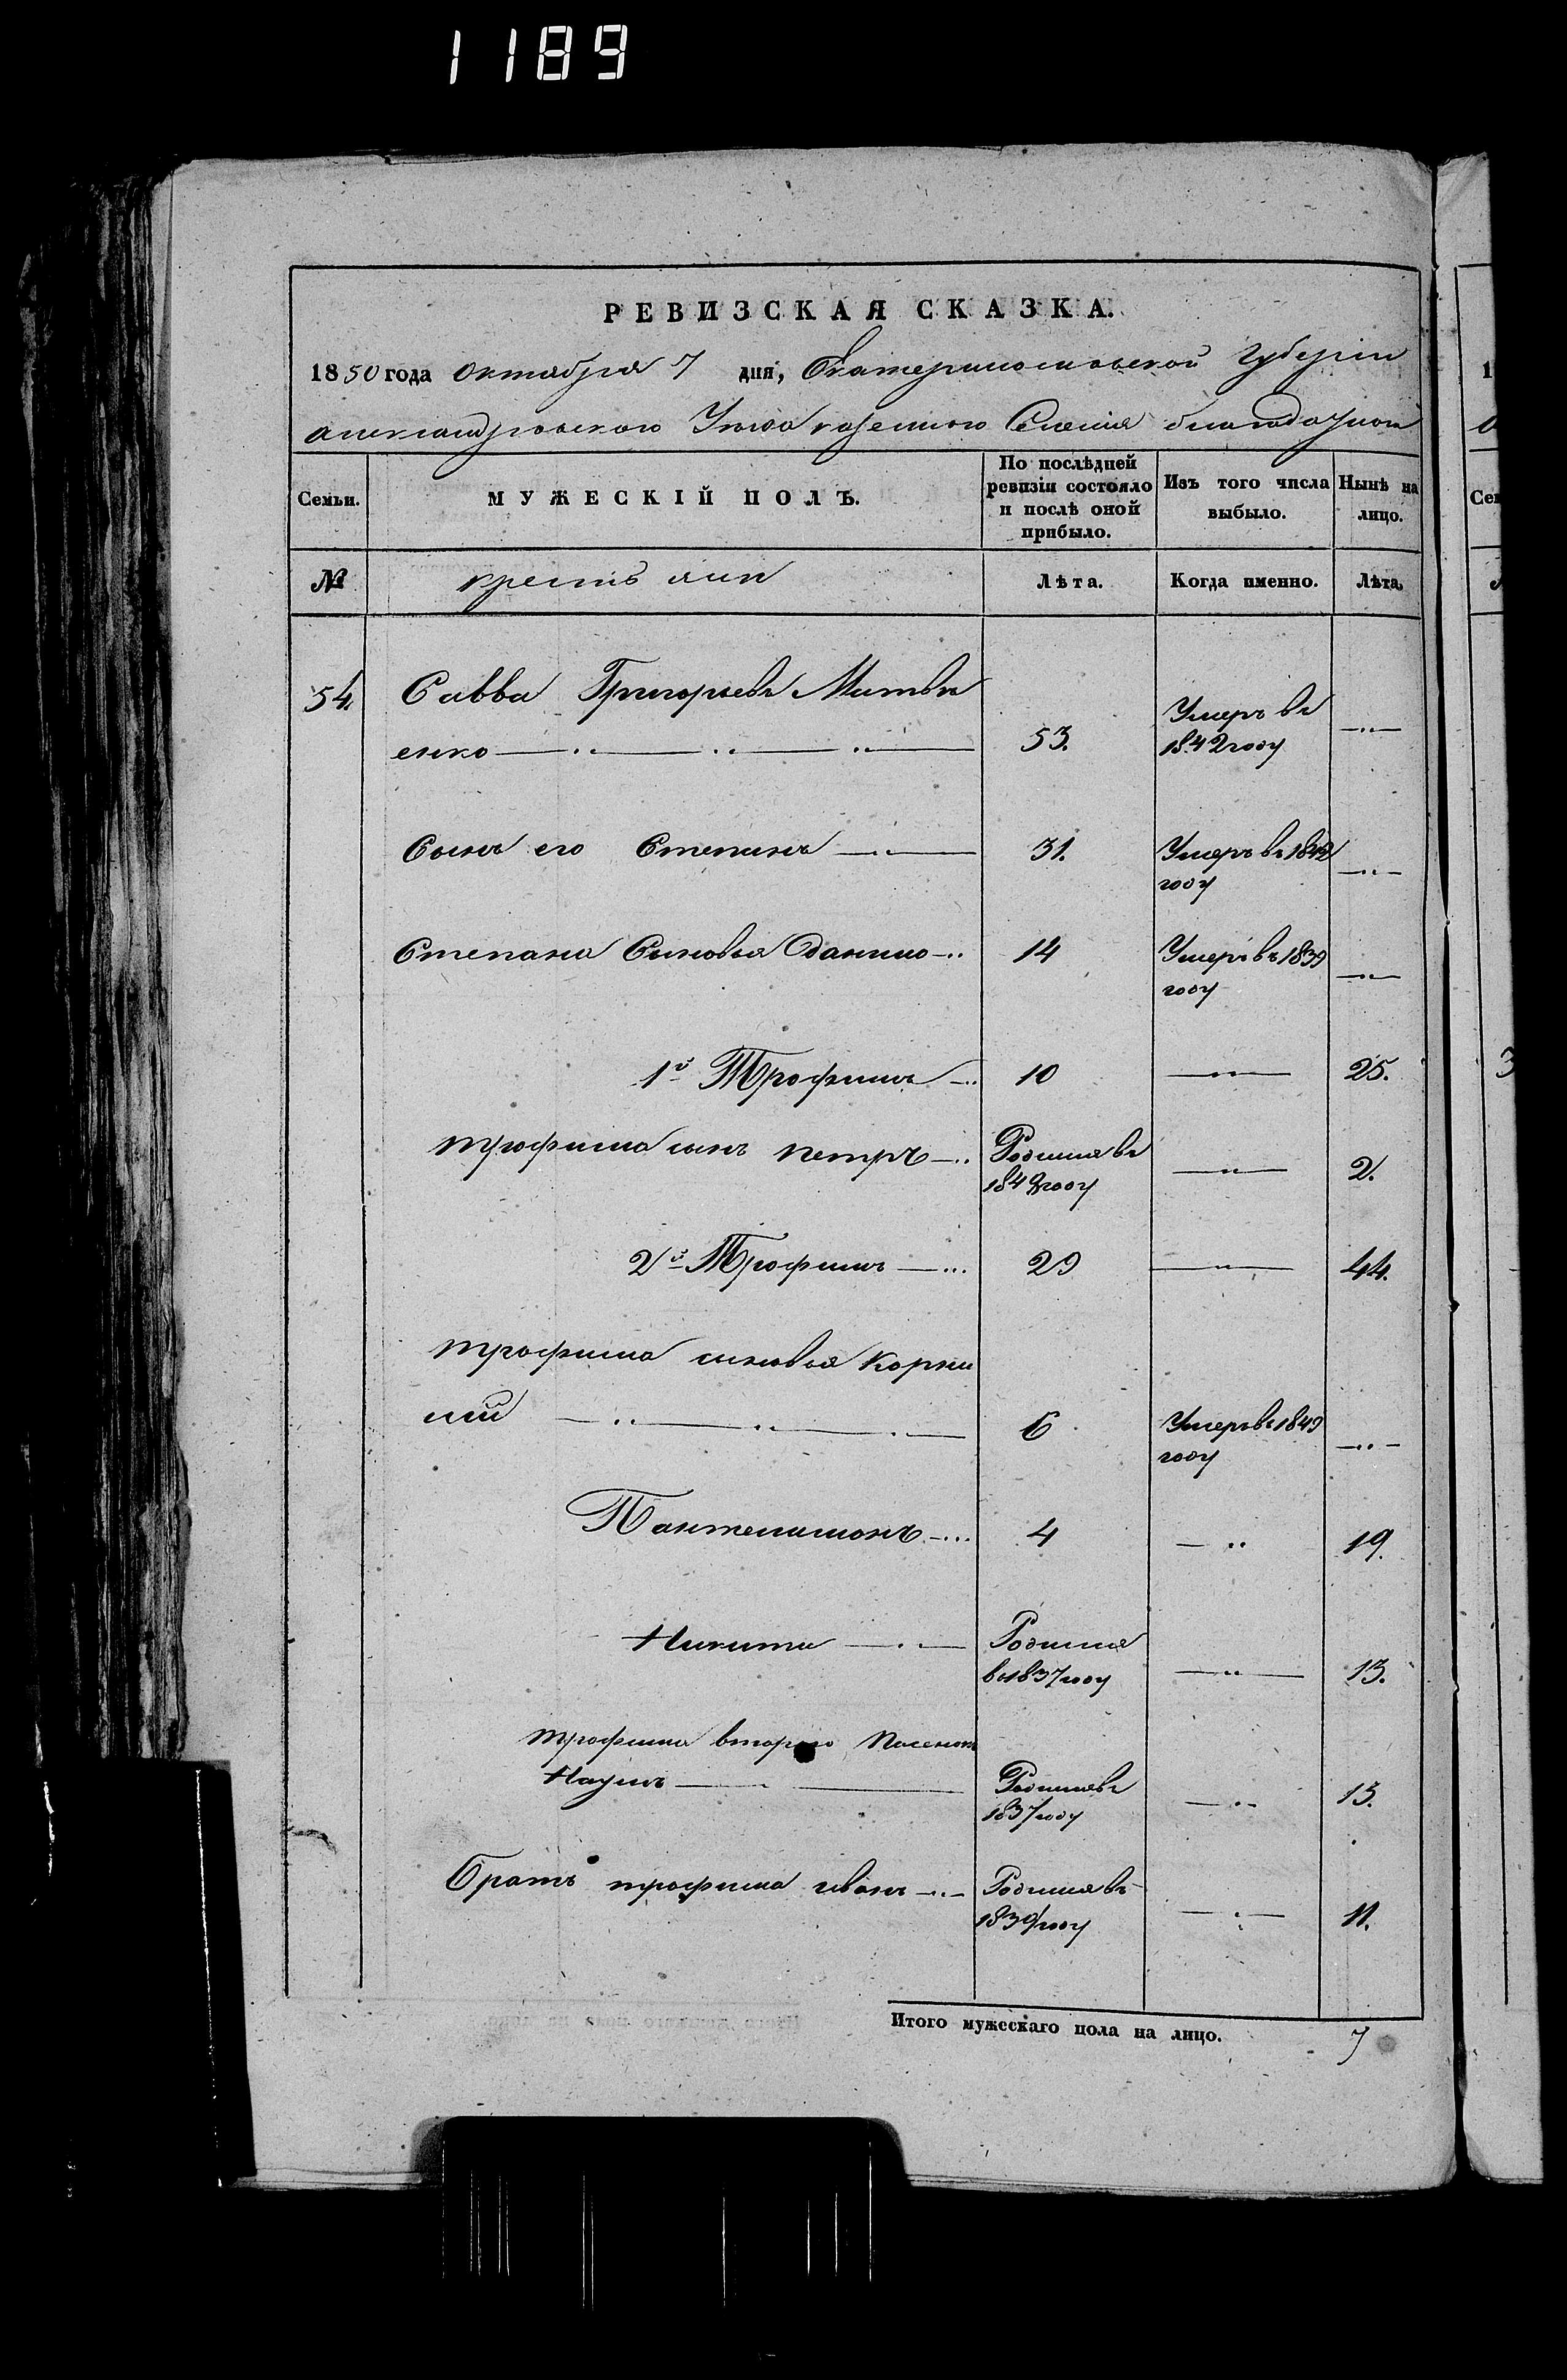 1189
РЕВИЗСКАЯ СКАЗКА.
1850 года октября 7 дня, Екатеринославской Губерніи
александровского Уезда казенного Селения благодатной
Семьи.
МУЖЕСКІЙ ПОЛЪ.
По послѣдней ревизіи состояло и послѣ оной прибыло.
Изъ того числа выбыло.
Нынѣ на лицо.
№
крестьяни
Лѣта.
Когда именно.
Лѣта.
54. Савва Григорьевъ Митви
енко 53. Умеръ въ 1842 году
Сынъ его Степанъ 31. Умеръ въ 1842 году
Степана Сыновья Данило 14 Умеръ въ 1839 году
1й Трофимъ 10 25.
трофима сынъ петръ Родился въ 1848 году 2.
2й Трофимъ 29 44.
трофима сыновья Корни
лий 6 Умеръ въ 1849 году
Пантелимонъ 4 19.
Никита Родился въ 1837 году 13.
трофима второго
Наумъ Родился въ 1837 году 13.
братъ трофима иванъ Родился въ 1839 году 11.
Итого мужескаго пола на лицо. 7